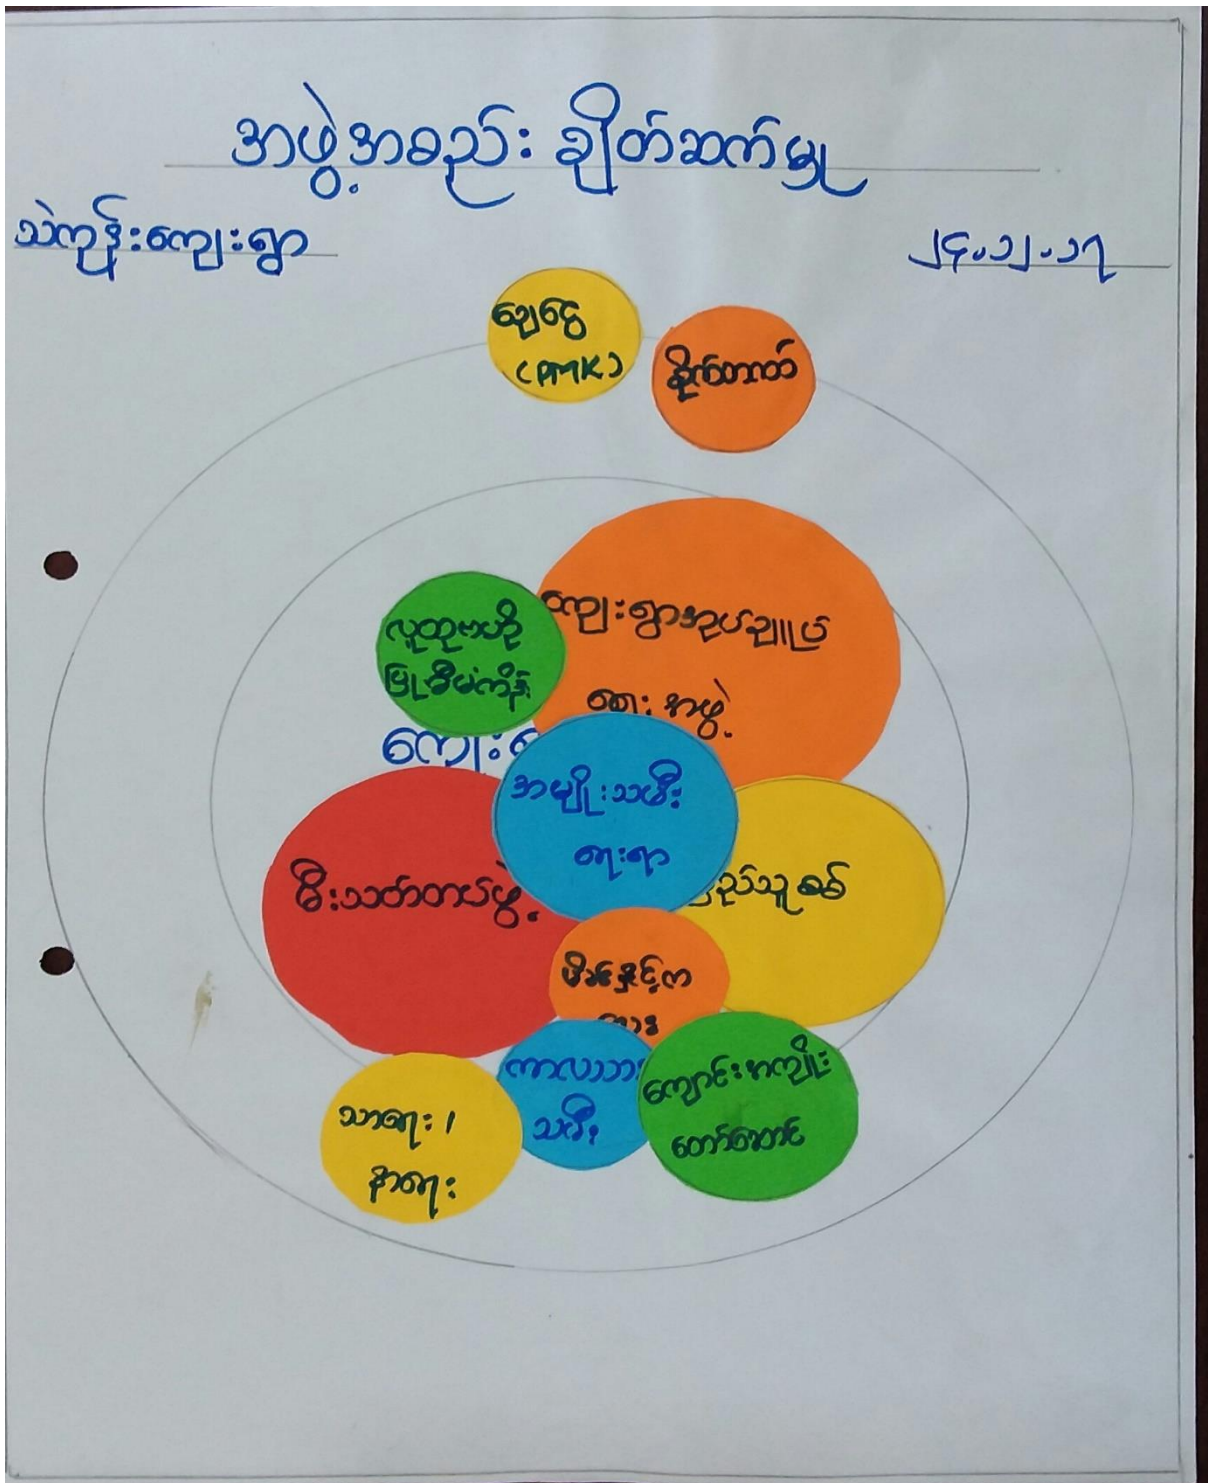 အဖွဲ့အစည်း ချိတ်ဆက်မှု
သဲကုန်းကျေးရွာ
၂၄.၁၂.၁၇
ချေငွေ
(PMK)
စိုက်တတ်
လူထုဗဟို
ပြုစီမံကိန်း
ကျေးရွာအုပ်ချုပ်
ရေး အဖွဲ့
ကျေး
အမျိုးသမီး
ရေးရာ
မီးသတ်တပ်ဖွဲ့
ပြည်သူစစ်
မိခင်နှင့်က
လေး
ကာလသား
သမီး
ကျောင်းအကျိုး
တော်ဆောင်
သာရေး၊
နာရေး